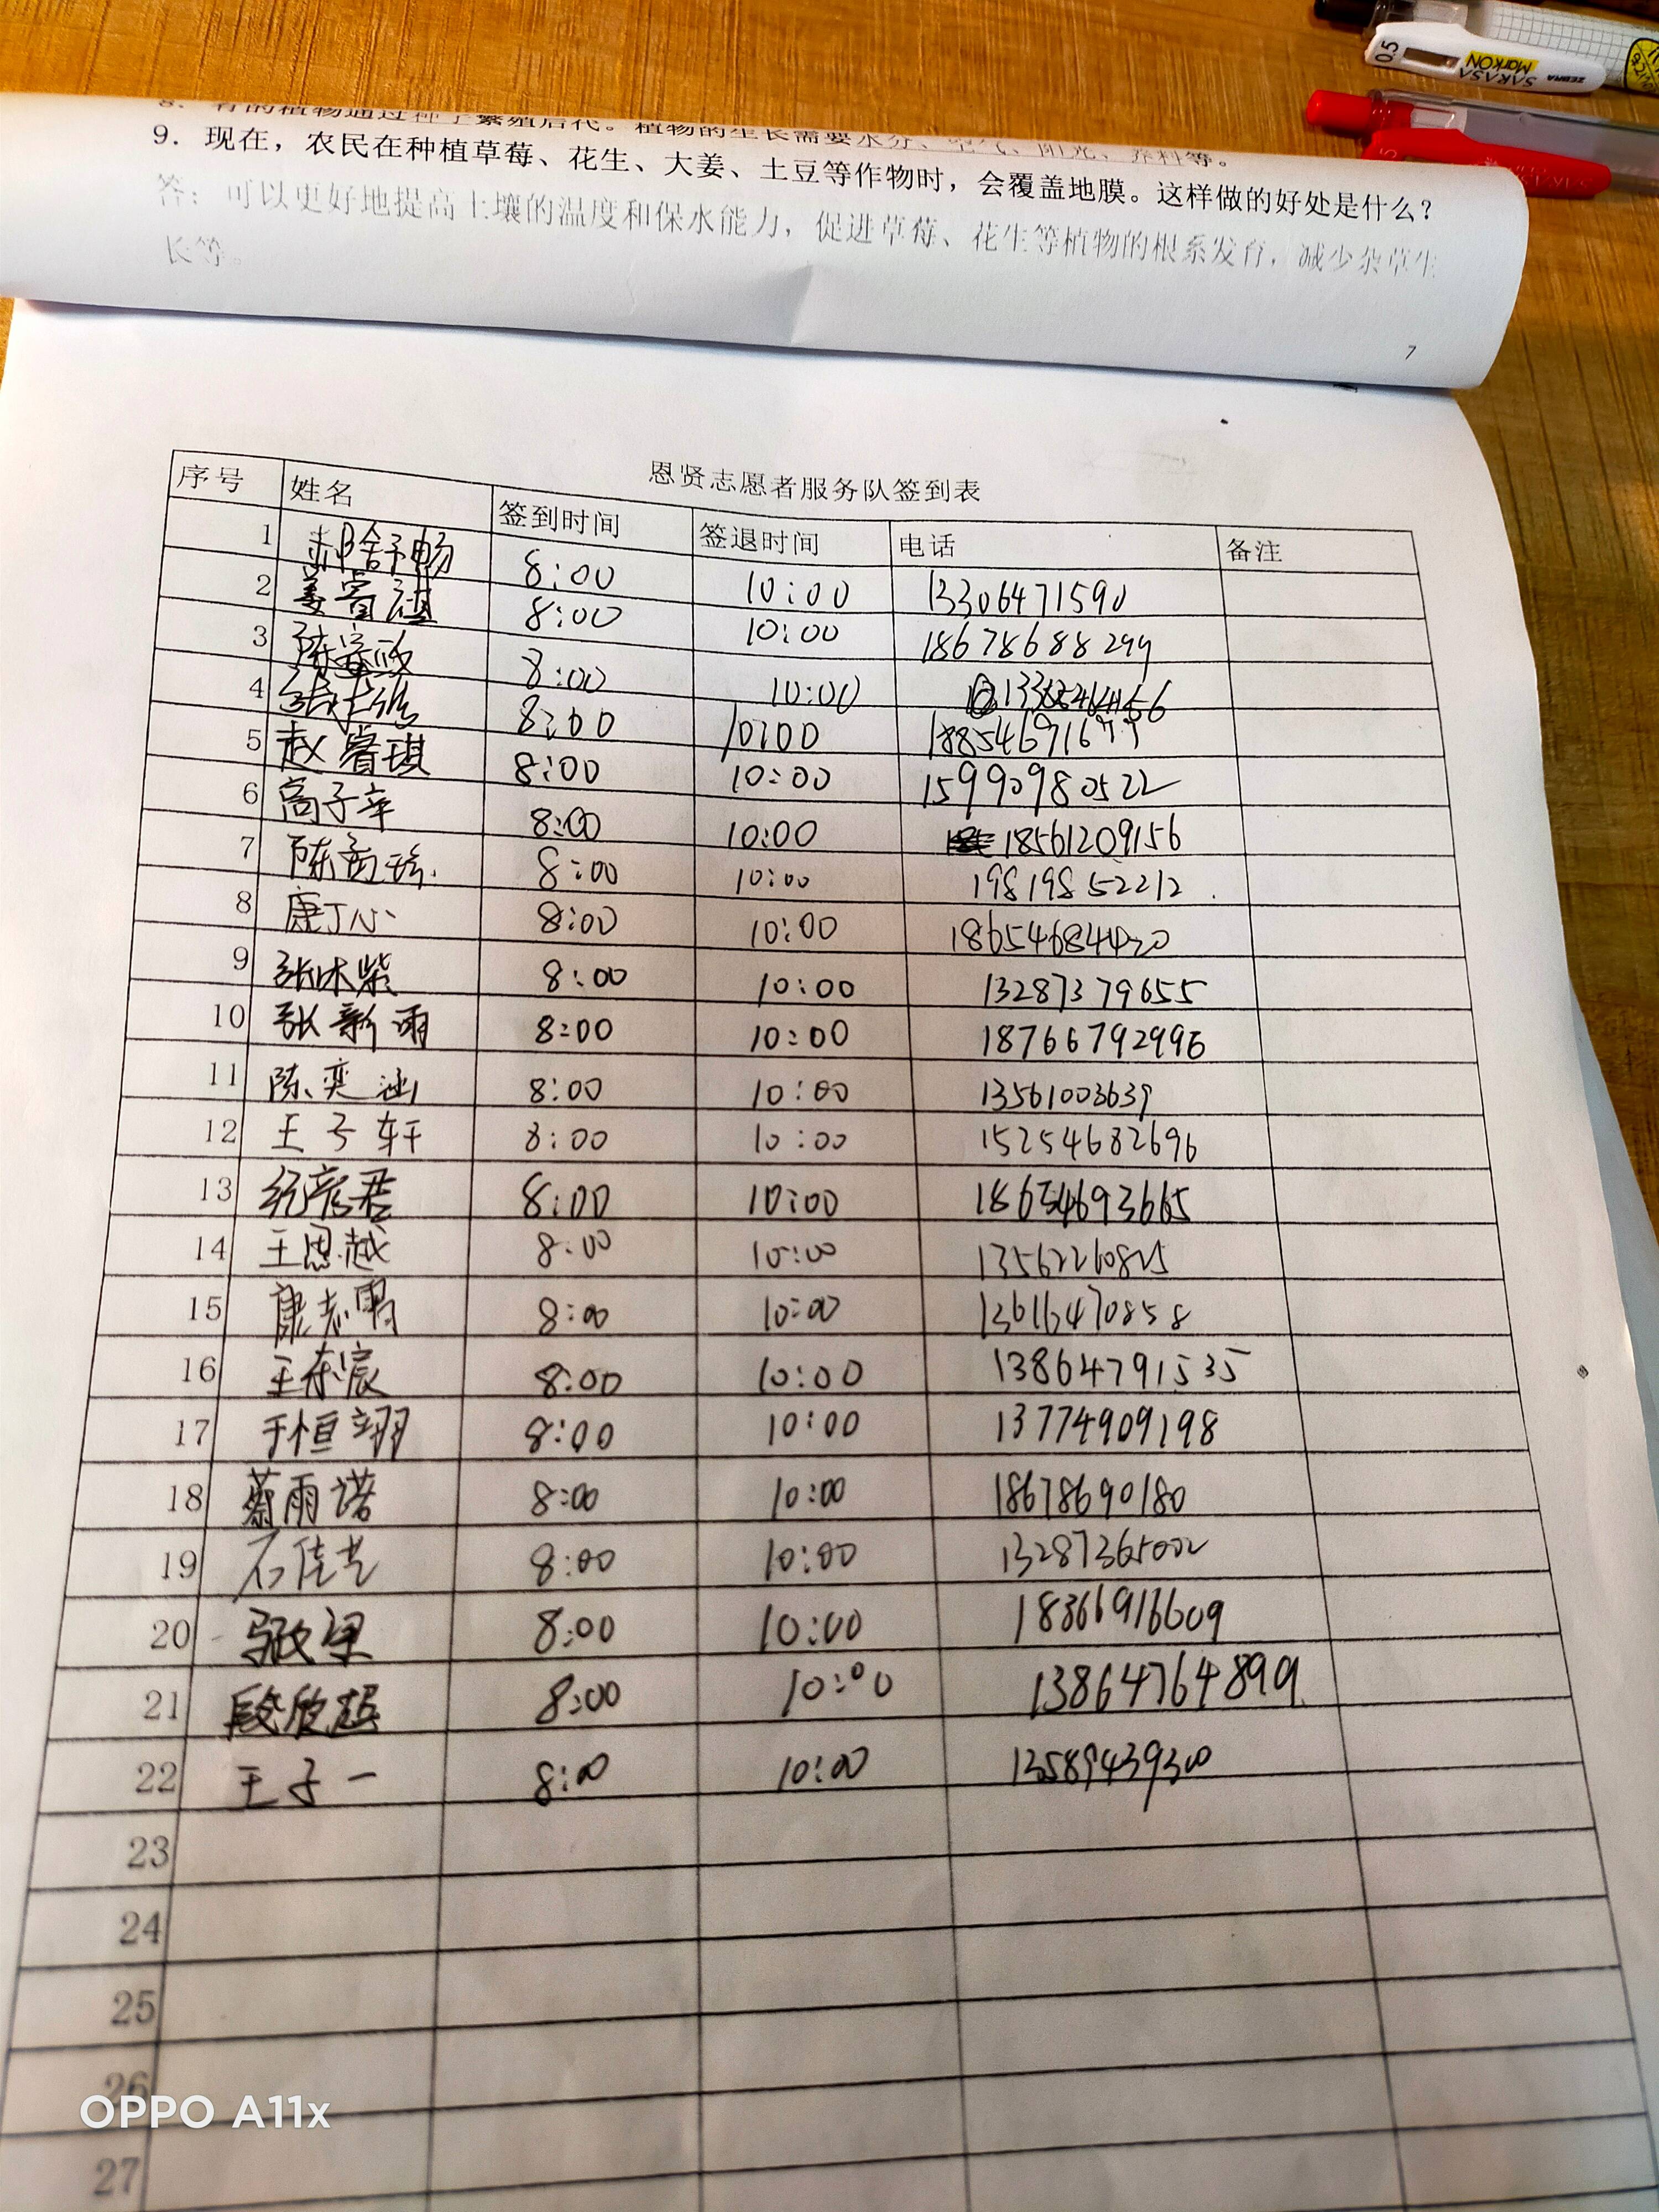 9. 现在，农民在种植草莓、花生、大姜、土豆等作物时，会覆盖地膜。这样做的好处是什么？
答：可以更好地提高土壤的温度和保水能力，促进草莓、花生等植物的根系发育，减少杂草生
长等。
7
恩贤志愿者服务队签到表
序号 姓名 签到时间 签退时间 电话 备注
1 郝舒畅 8:00 10:00 13306471590
2 8:00 10:00 18678688299
3 8:00 10:00
4 8:00 10:00
5 赵睿琪 8:00 10:00 15990980522
6 高子幸 8:00 10:00 18561209156
7 8:00 10:00 19819852212
8 康丁心 8:00 10:00
9 8:00 10:00 13287379655
10 张新雨 8:00 10:00 18766792996
11 陈奕涵 8:00 10:00 13561003639
12 王子轩 8:00 10:00 15254682696
13 8:00 10:00 18654693665
14 王思越 8:00 10:00
15 8:00 10:00 13616470858
16 王东宸 8:00 10:00 13864791535
17 于恒翊 8:00 10:00 13774909198
18 蔡雨诺 8:00 10:00 18678690180
19 8:00 10:00 13287365002
20 8:00 10:00 18366916609
21 段欣超 8:00 10:00 13864764899
22 王子一 8:00 10:00 13589439300
23
24
25
26
27
OPPO A11x
0.5
MarkON
SARASA
ZEBRA